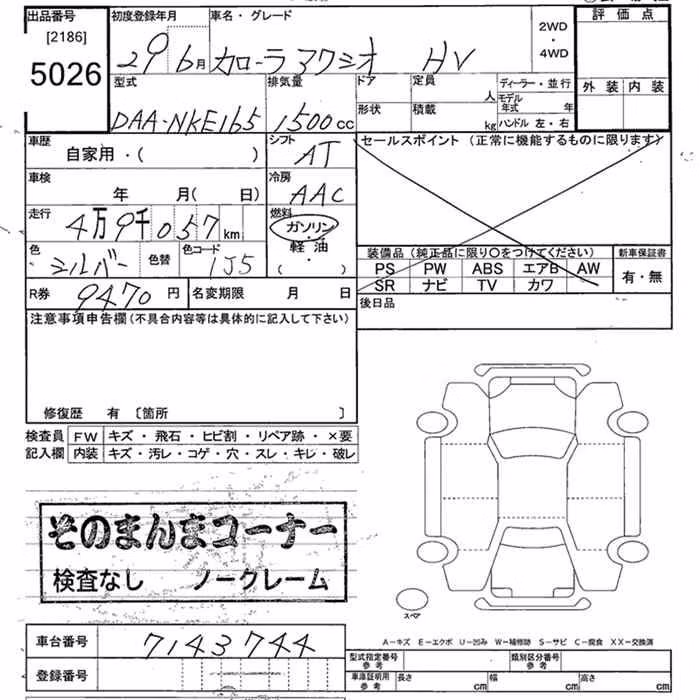 出品番号 初度登録年月 車名・グレード 2WD・4WD 評価点
[2186]
5026
29 6月 カローラアクシオ HV
外装 内装
型式 排気量 ドア 定員 人 ディーラー・並行
DAA-NKE165 1500cc 形状 積載 kg モデル年式 年
ハンドル 左・右
車歴 シフト セールスポイント (正常に機能するものに限ります)
自家用・( ) AT
車検 冷房
年 月( 日) AAC
走行 燃料
4万9千057km ガソリン
軽油
( ・ )
色 色替 色コード
シルバー 1J5
装備品(純正品に限り〇をつけてください) 新車保証書
PS PW ABS エアB AW 有・無
SR ナビ TV カワ
R券 9470円 名変期限 月 日 後日品
注意事項申告欄(不具合内容等は具体的に記入して下さい)
修復歴 有 〔箇所 〕
検査員 FW キズ・飛石・ヒビ割・リペア跡・×要
記入欄 内装 キズ・汚レ・コゲ・穴・スレ・キレ・破レ
そのまんまコーナー
検査なし ノークレーム
スペア
A−キズ E−エクボ U−凹み W−補修跡 S−サビ C−腐食 XX−交換済
車台番号 7143744
登録番号
型式指定番号 参考 類別区分番号 参考
車庫証明用 参考 長さ cm 幅 cm 高さ cm